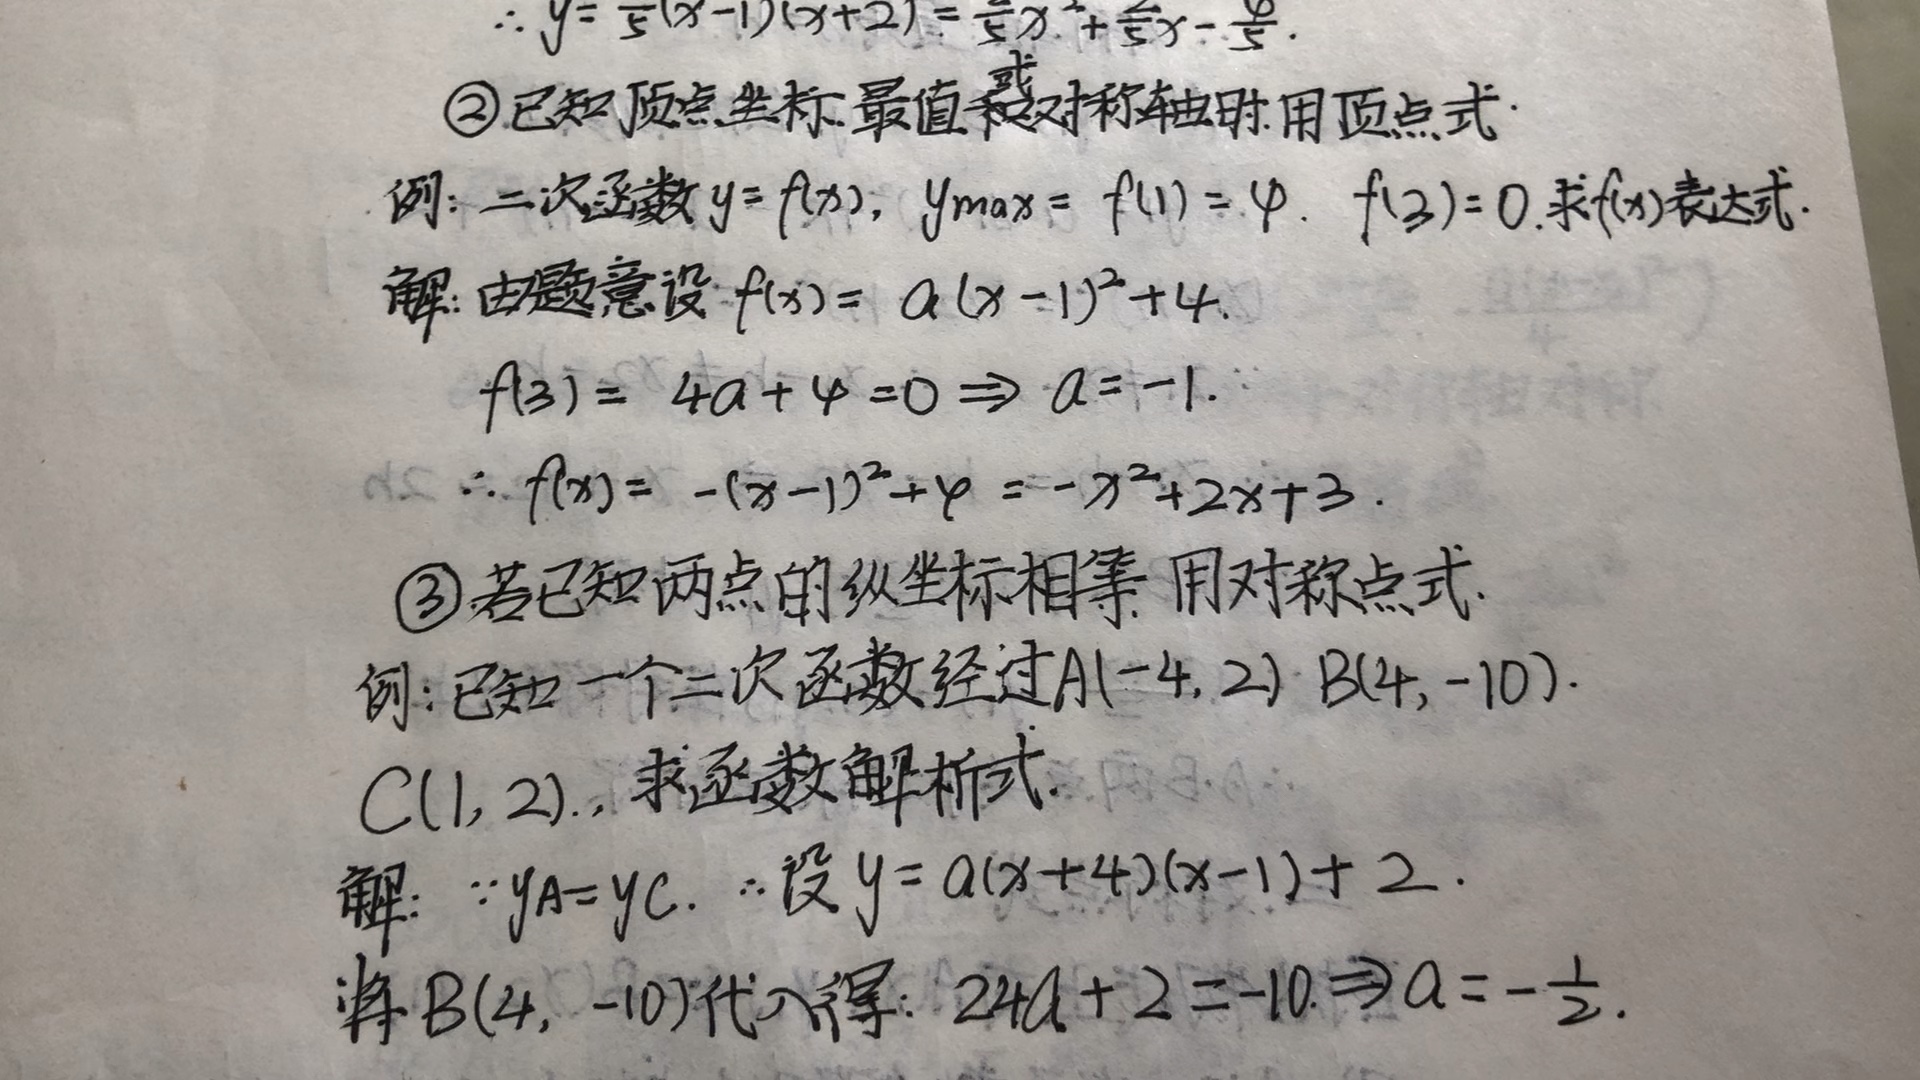 ∴ y = /5 (x-1)(x+2) = /5 x² + /5 x - /5.
②已知顶点坐标.最值或对称轴时.用顶点式.
例: 二次函数y=f(x), ymax = f(1) = 4. f(3)=0.求f(x)表达式.
解: 由题意设 f(x) = a(x-1)²+4.
f(3) = 4a+4=0 ⇒ a=-1.
∴ f(x) = -(x-1)²+4 = -x²+2x+3.
③若已知两点的纵坐标相等.用对称点式.
例:已知一个二次函数经过A(-4,2) B(4,-10).
C(1,2)., 求函数解析式.
解: ∵yA=yC. ∴设 y = a(x+4)(x-1)+2.
将B(4, -10)代入得: 24a+2=-10.⇒a=-1/2.